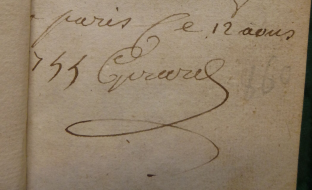 paris Ce 12 aous
755 Girard